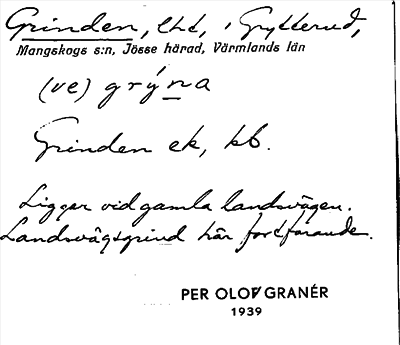 Grinden, lht, i Grytterud,
Mangskogs s:n, Jösse härad, Värmlands län
(ve) grýna
Grinden ek, kb.
Ligger vid gamla landsvägen.
Landsvägsgrind här fortfarande.
PER OLOF GRANÉR
1939